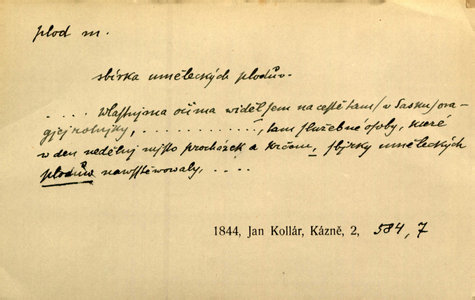 plod m.
sbírka uměleckých plodův.
. . . . wlastnjma očima widěl sem na cestě tam / w Sasku /
. . . . . . . . . . , tam služebné osoby, které
w den nedělnj mjsto procházek a krčem, sbjrky uměleckých
plodůw nawsstěwowaly, . . . .
1844, Jan Kollár, Kázně, 2, 584, 7